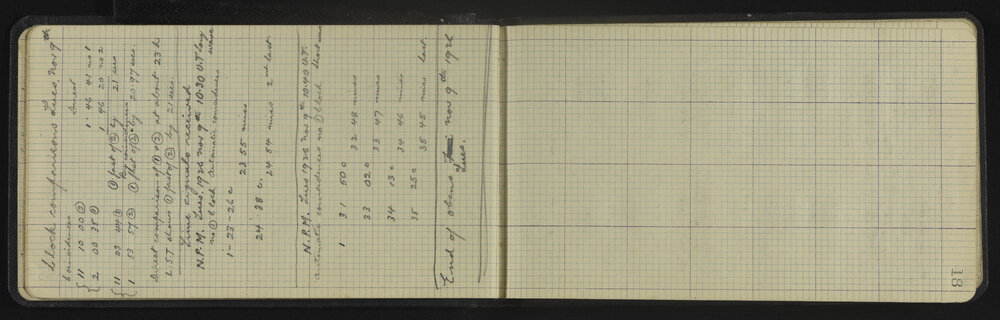 Clock comparisons Tues. Nov 9th
Coincidences
Direct
11 10 00 ②
1 46 41 no 1
2 00 35 ①
1 46 20 no 2
① fast of ② by 21 secs
11 03 44 ②
By coincidences
1 53 57 ②
① fast of ② by 20.97 secs.
Direct comparison of ① & ② at about 23 h
L.S.T. shows ① fast of ② by 21 secs.
Time signals received
N.P.M. Tues. 1926 Nov 9th 10.30 U.T. long wave
no ① clock automatic coincidences
1 - 23 - 26 c
23 55 miss
24 38 c.
24 54 miss 2nd last
N.P.M. Tues 1926 Nov 9th 10.40 U.T.
automatic coincidences no ① clock short wave
1 31 50 c
32 48 miss
33 02 c
33 47 miss
34 13 c
34 46 miss
35 25 c
35 45 miss last
End of obsns Tues. Nov 9th 1926
18